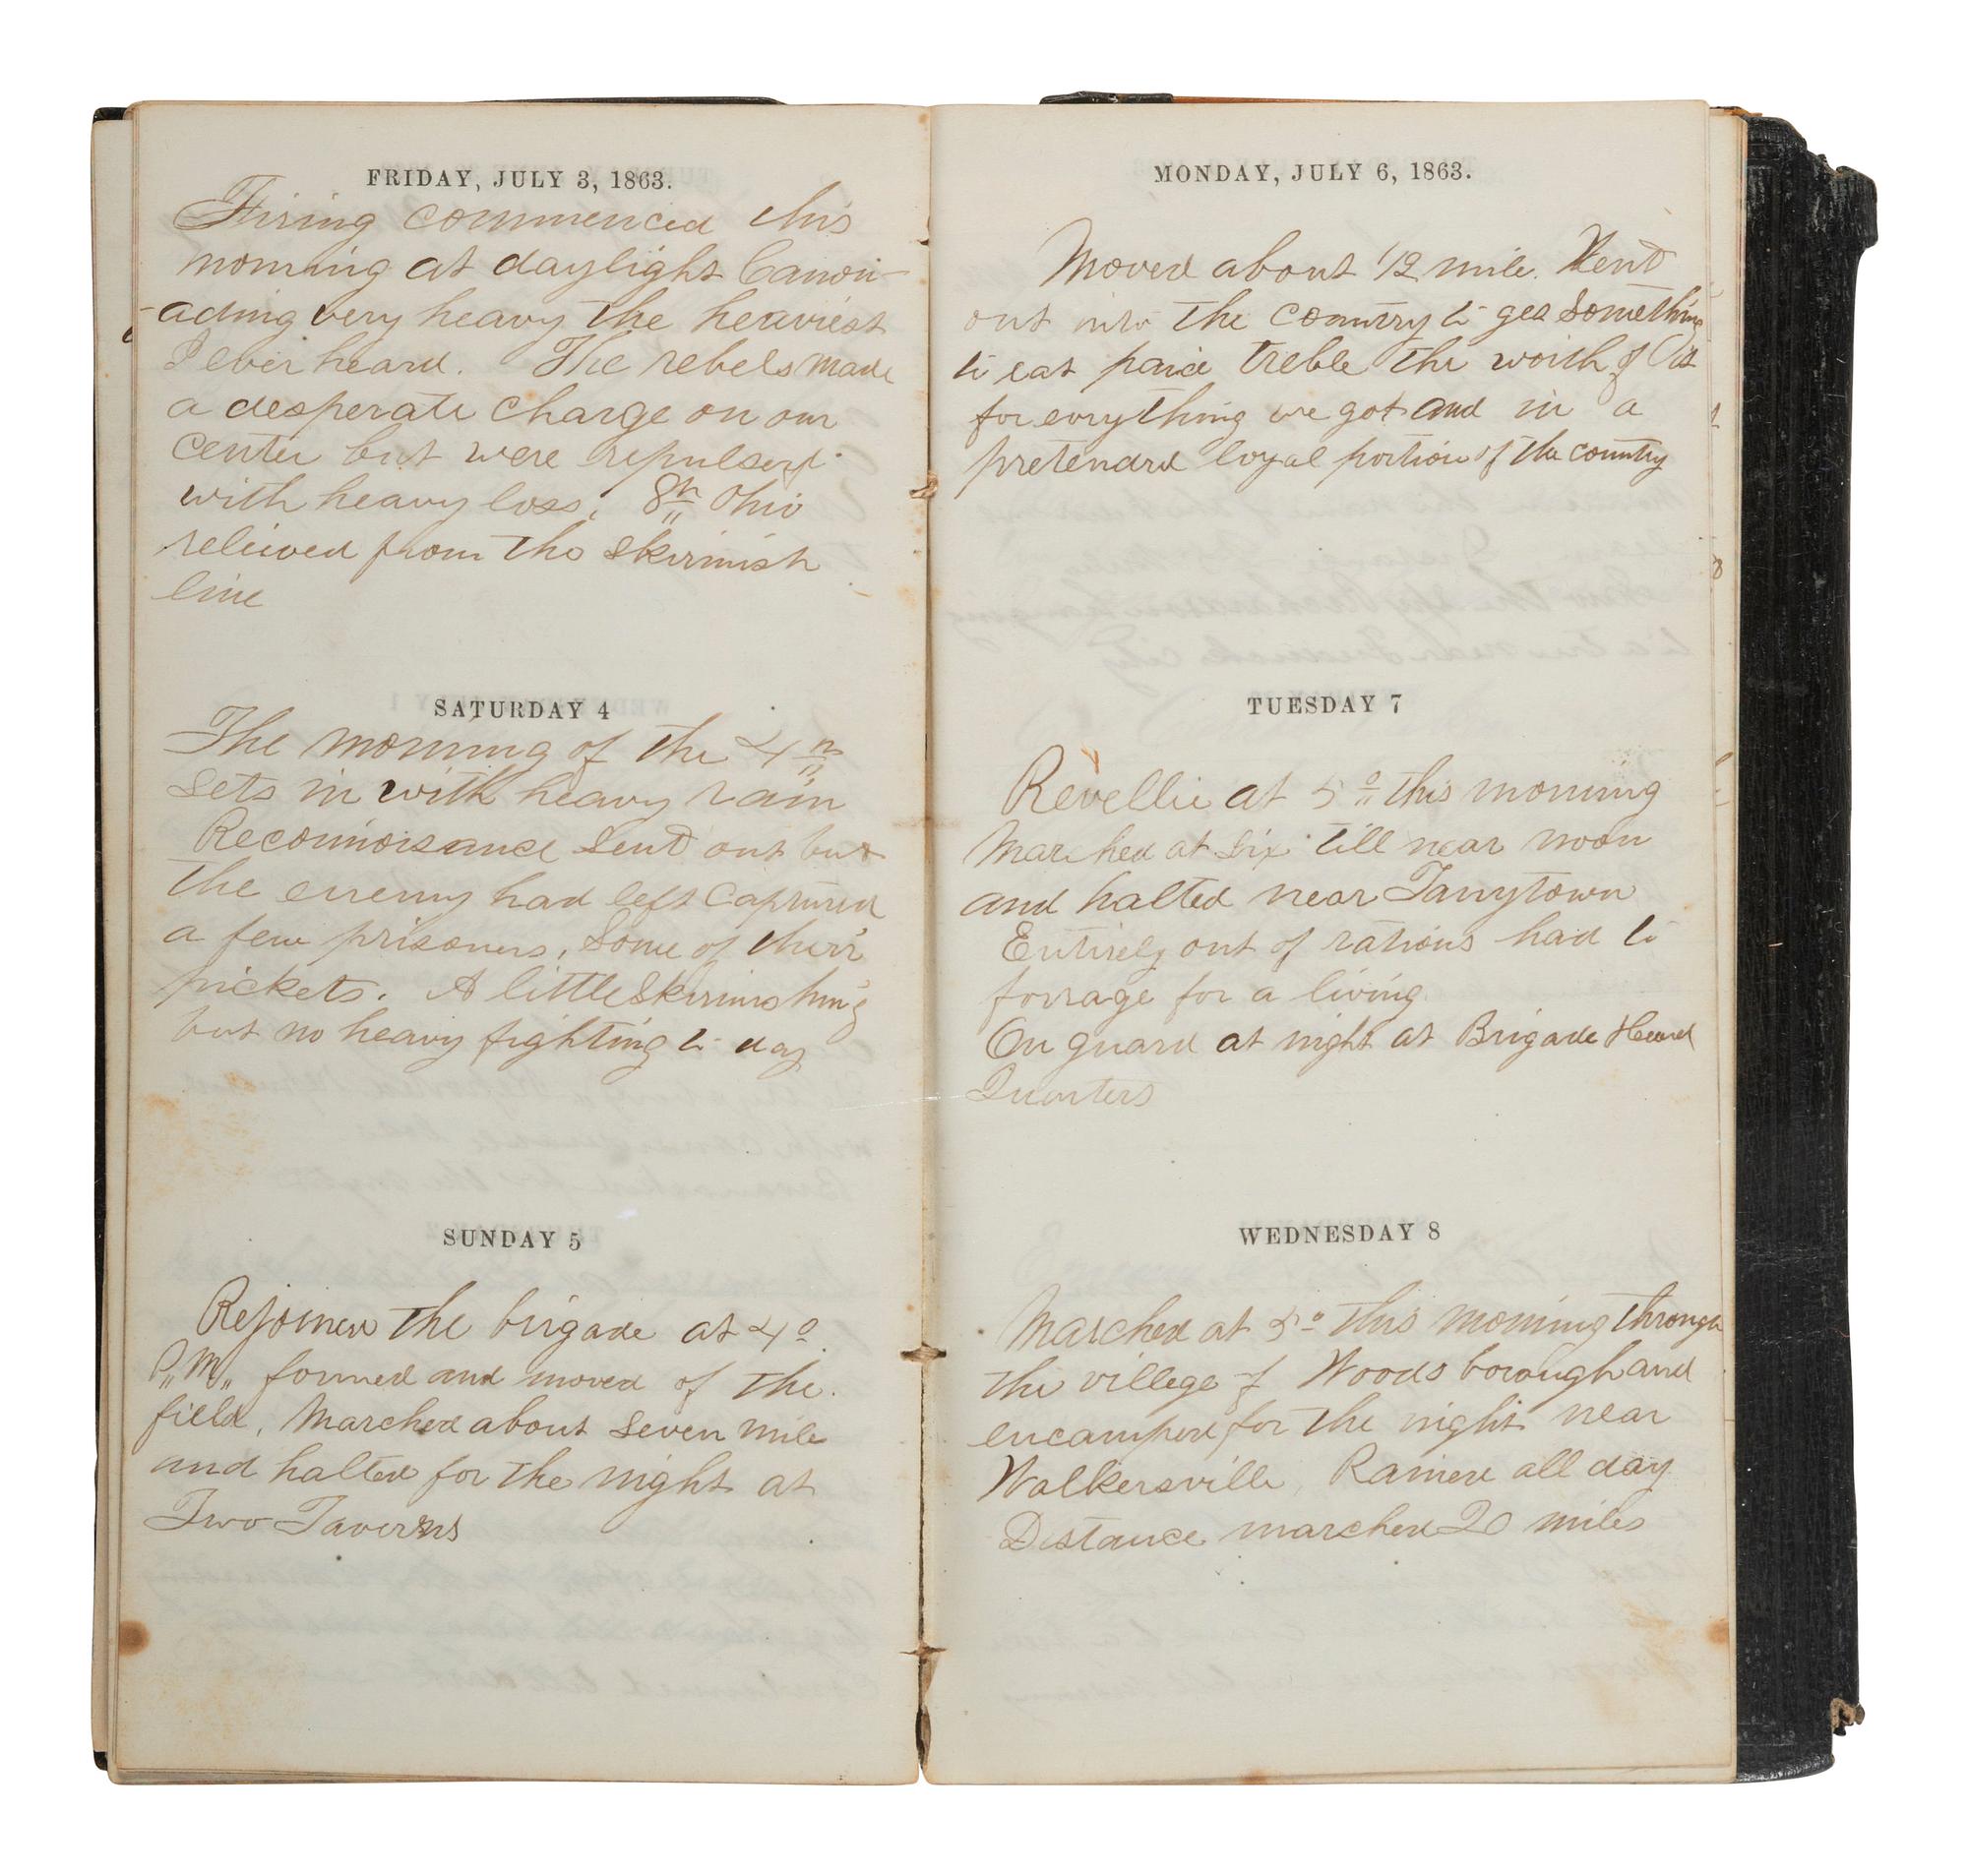 FRIDAY, JULY 3, 1863.
Firing commenced this
morning at daylight Canon-
-ading very heavy the heaviest
I ever heard. The rebels made
a desperate charge on our
center but were repulsed
with heavy loss. 8th Ohio
releived from the skirmish
line
SATURDAY 4
The morning of the 4th
sets in with heavy rain
Reconnoisance sent out but
the enemy had left captured
a few prisoners, some of their
pickets. A little skirmishing
but no heavy fighting to day
SUNDAY 5
Rejoined the brigade at 4o
P,,M,, formed and moved of the
field. Marched about seven mile
and halted for the night at
Two Taverns
MONDAY, JULY 6, 1863.
Moved about 1/2 mile. Went
out into the country to get something
to eat paid treble the worth of it
for evrything we got and in a
pretended loyal portion of the country
TUESDAY 7
Revellie at 5o this morning
Marched at six till near noon
and halted near Tanytown
Entirely out of rations had to
forrage for a living
On guard at night at Brigade Head
Quarters
WEDNESDAY 8
Marched at 5o this morning through
the villege of Woodsborough and
encamped for the night near
Walkersville, Rained all day
Distance marched 20 miles